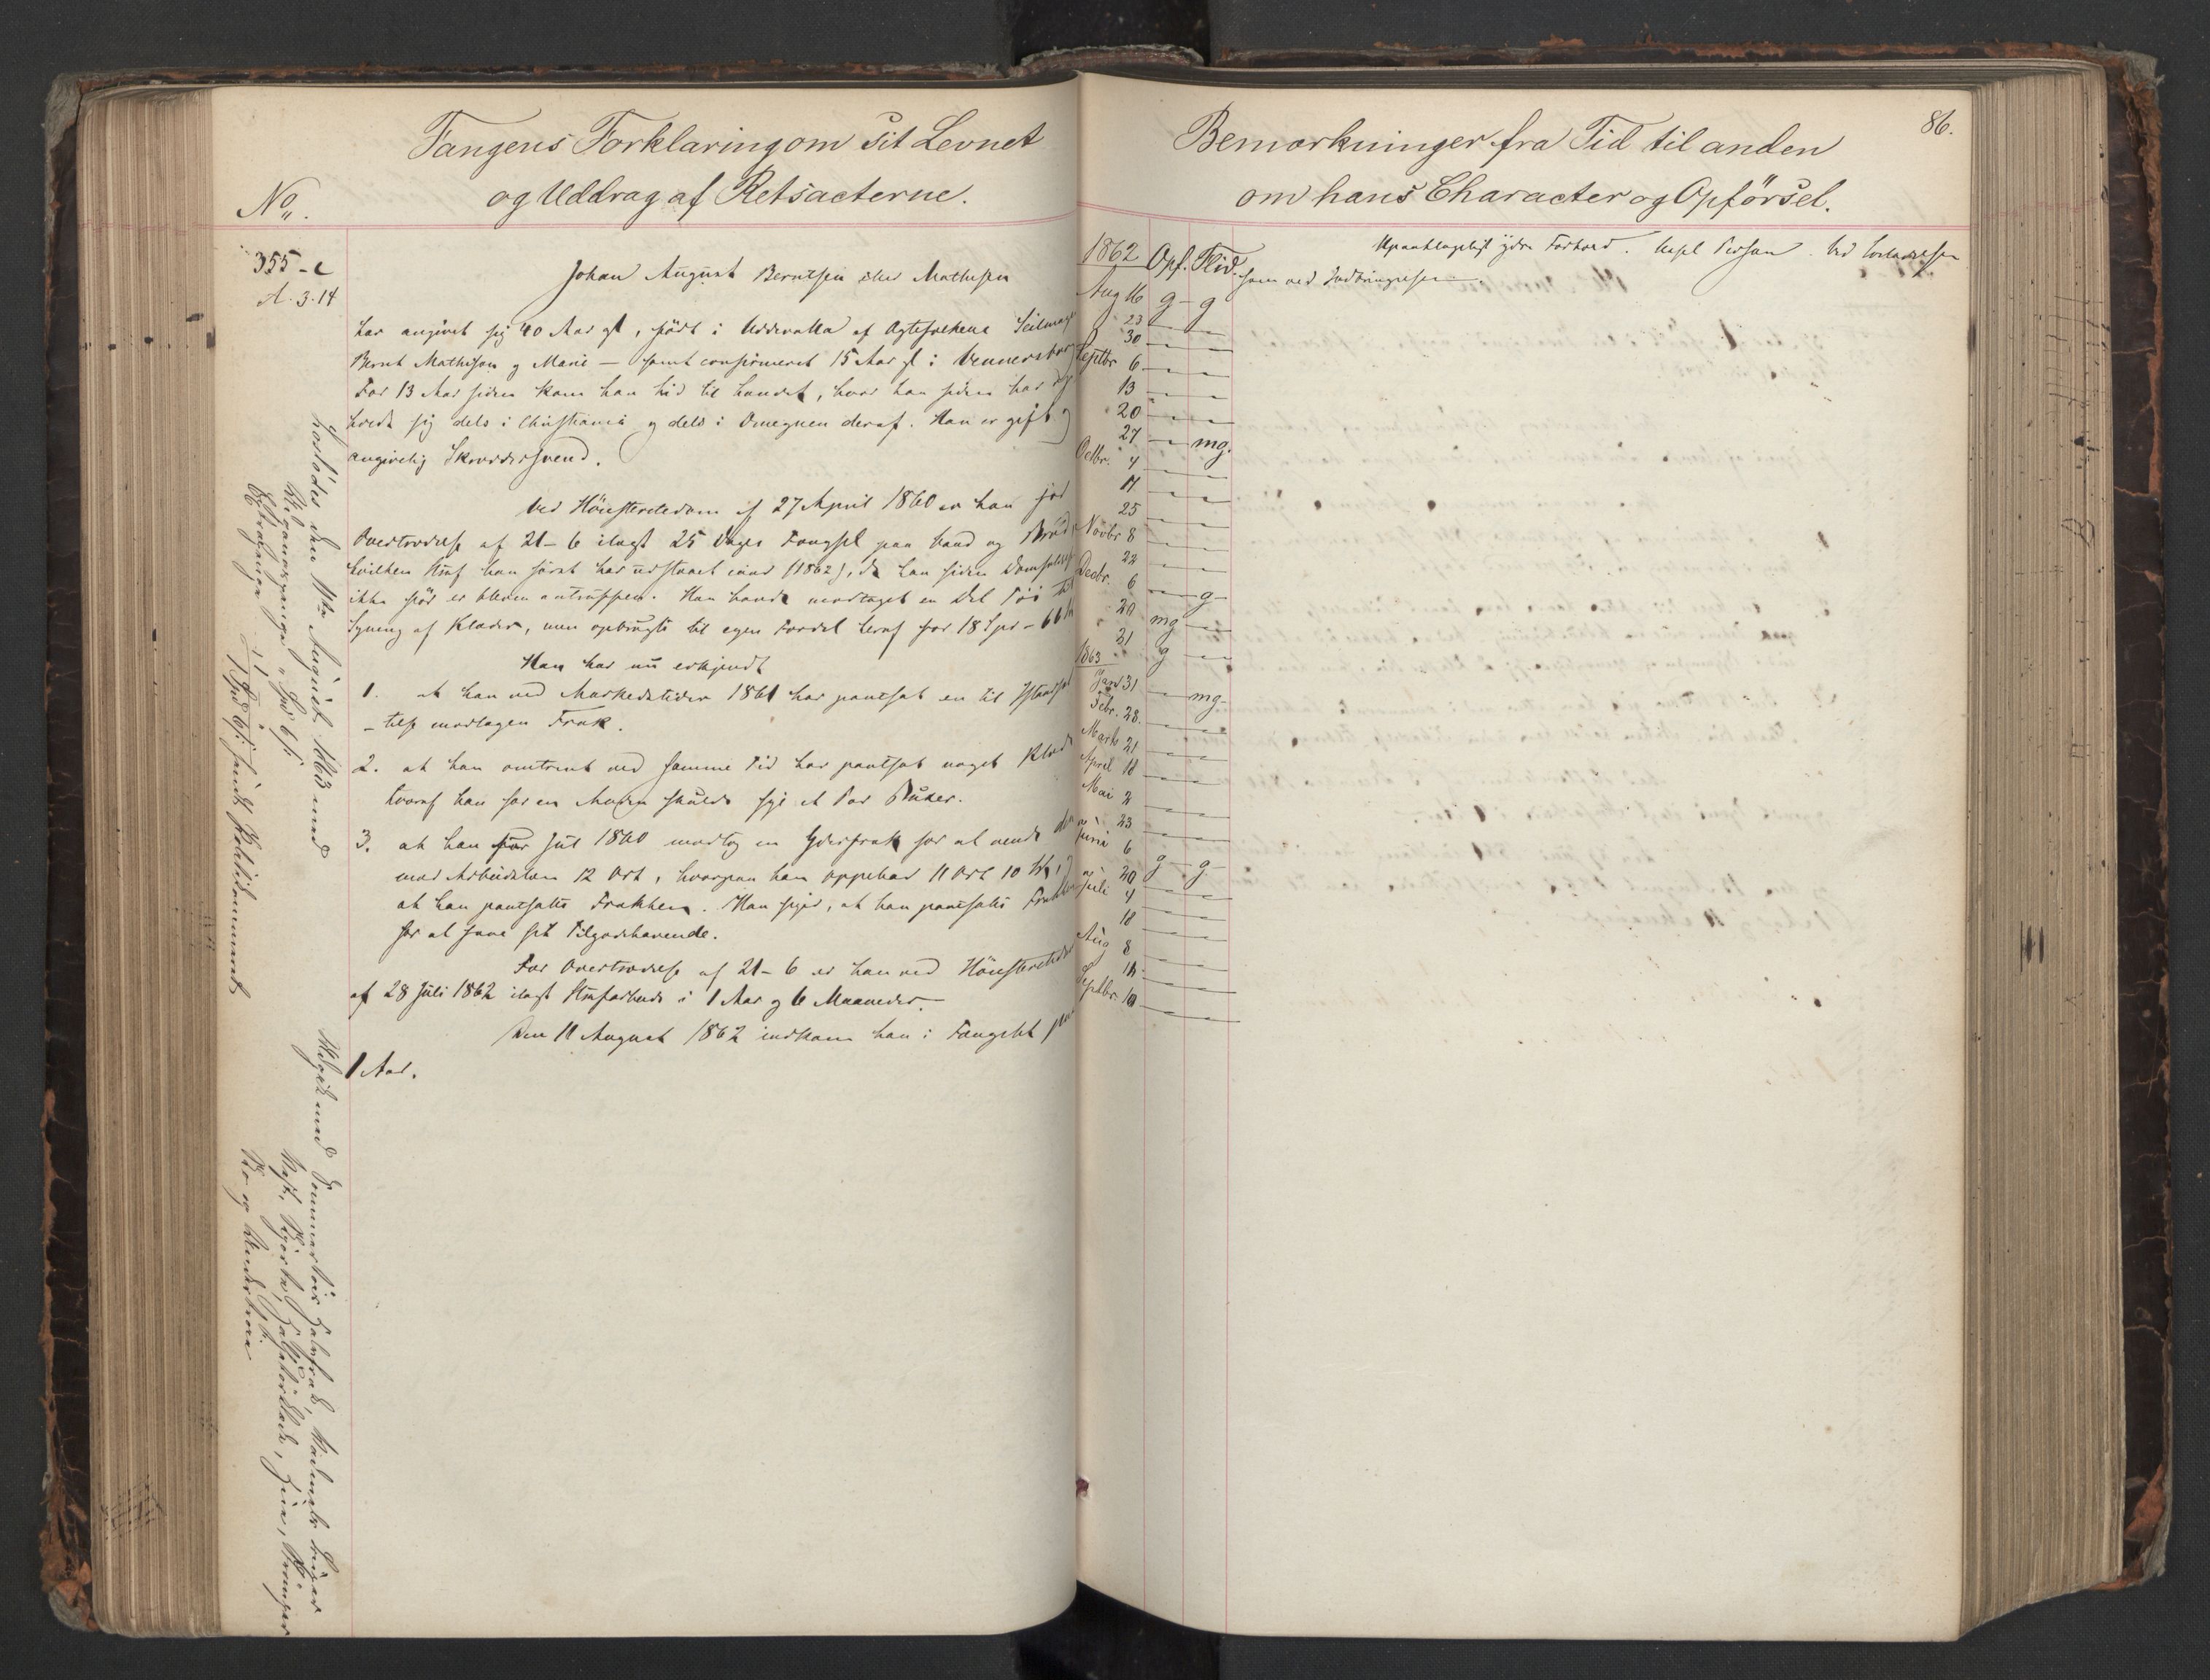 Fangens Forklaring om sit Levnet
og Uddrag af Retsacterne.
No.
355-c
A. 3.14
Johan August Berntsen eller Mathisen
har angivet sig 40 Aar gl, født i Uddevalla af Ægtefolkene Seilmager
Bernt Mathisen og Marie — samt confirmeret 15 Aar gl i Vennersborg
For 13 Aar siden kom han hid til Landet, hvor han siden har op
holdt sig dels i Christiania og dels i Omegnen deraf. Han er gift og
angivelig Skræddersvend.
Ved Høiesteretsdom af 27 April 1860 er han for
Overtrædelse af 21-6 ilagt 25 Dages Fængsel paa Vand og Brød
hvilken Straf han først har udstaaet iaar (1862), da han siden Domfældelsen
ikke før er bleven antruffen. Han havde modtaget en Del Tøi til
Syning af Klæder, men opbrugte til egen Fordel heraf for 18 Spd - 66
Han har nu erkjendt
1. at han ved Markedstiden 1861 har pantsat en til Istandsæt
-telse modtagen Frak.
2. at han omtrent ved samme Tid har pantsat noget Klæde
hvoraf han for en Anden skulde sye et Par Buxer.
3. at han før Jul 1860 modtog en Yderfrak for at vende den
mod Arbeidsløn 12 Ort, hvorpaa han oppebar 11 Ort 10
at han pantsatte Frakken. Han siger, at han pantsatte Frakken
for at faae sit Tilgodehavende.
For Overtrædelse af 21-6 er han ved Høiesteretsdom
af 28 Juli 1862 ilagt Strafarbeide i 1 Aar og 6 Maaneder.
Den 11 August 1862 indkom han i Fængslet paa
1 Aar.
Løslodes den 11te August 1863 med
Sendt Politikammeret
Afgik med Sommertøis Halsfrak, Vadmels Buxer
Vest, Skjorte, Halstørklæde, Hue, Strømper
Sko og Underbuxe
86.
Bemærkninger fra Tid til anden
om hans Character og Opførsel.
1862 Opf. Flid.
Upaaklageligt ydre Forhold. Person. Ved Løsladelsen
som ved Indbringelsen
Aug 16 g - g
23 — —
30 — —
Septbr 6 — —
13 — —
20 — —
27 — mg.
Octbr. 4 — —
11 — —
25 — —
Novbr 8 — —
22 — —
Decbr. 6 — g-
20 mg —
31 g —
1863
Jan 31 — mg-
Febr. 28. — —
Marts 21 — —
April 18 — —
Mai 2 — —
23 — —
Juni 6 — —
20 g - g-
Juli 4 — —
18 — —
Aug 8 — —
— —
Septbr. 10 — —